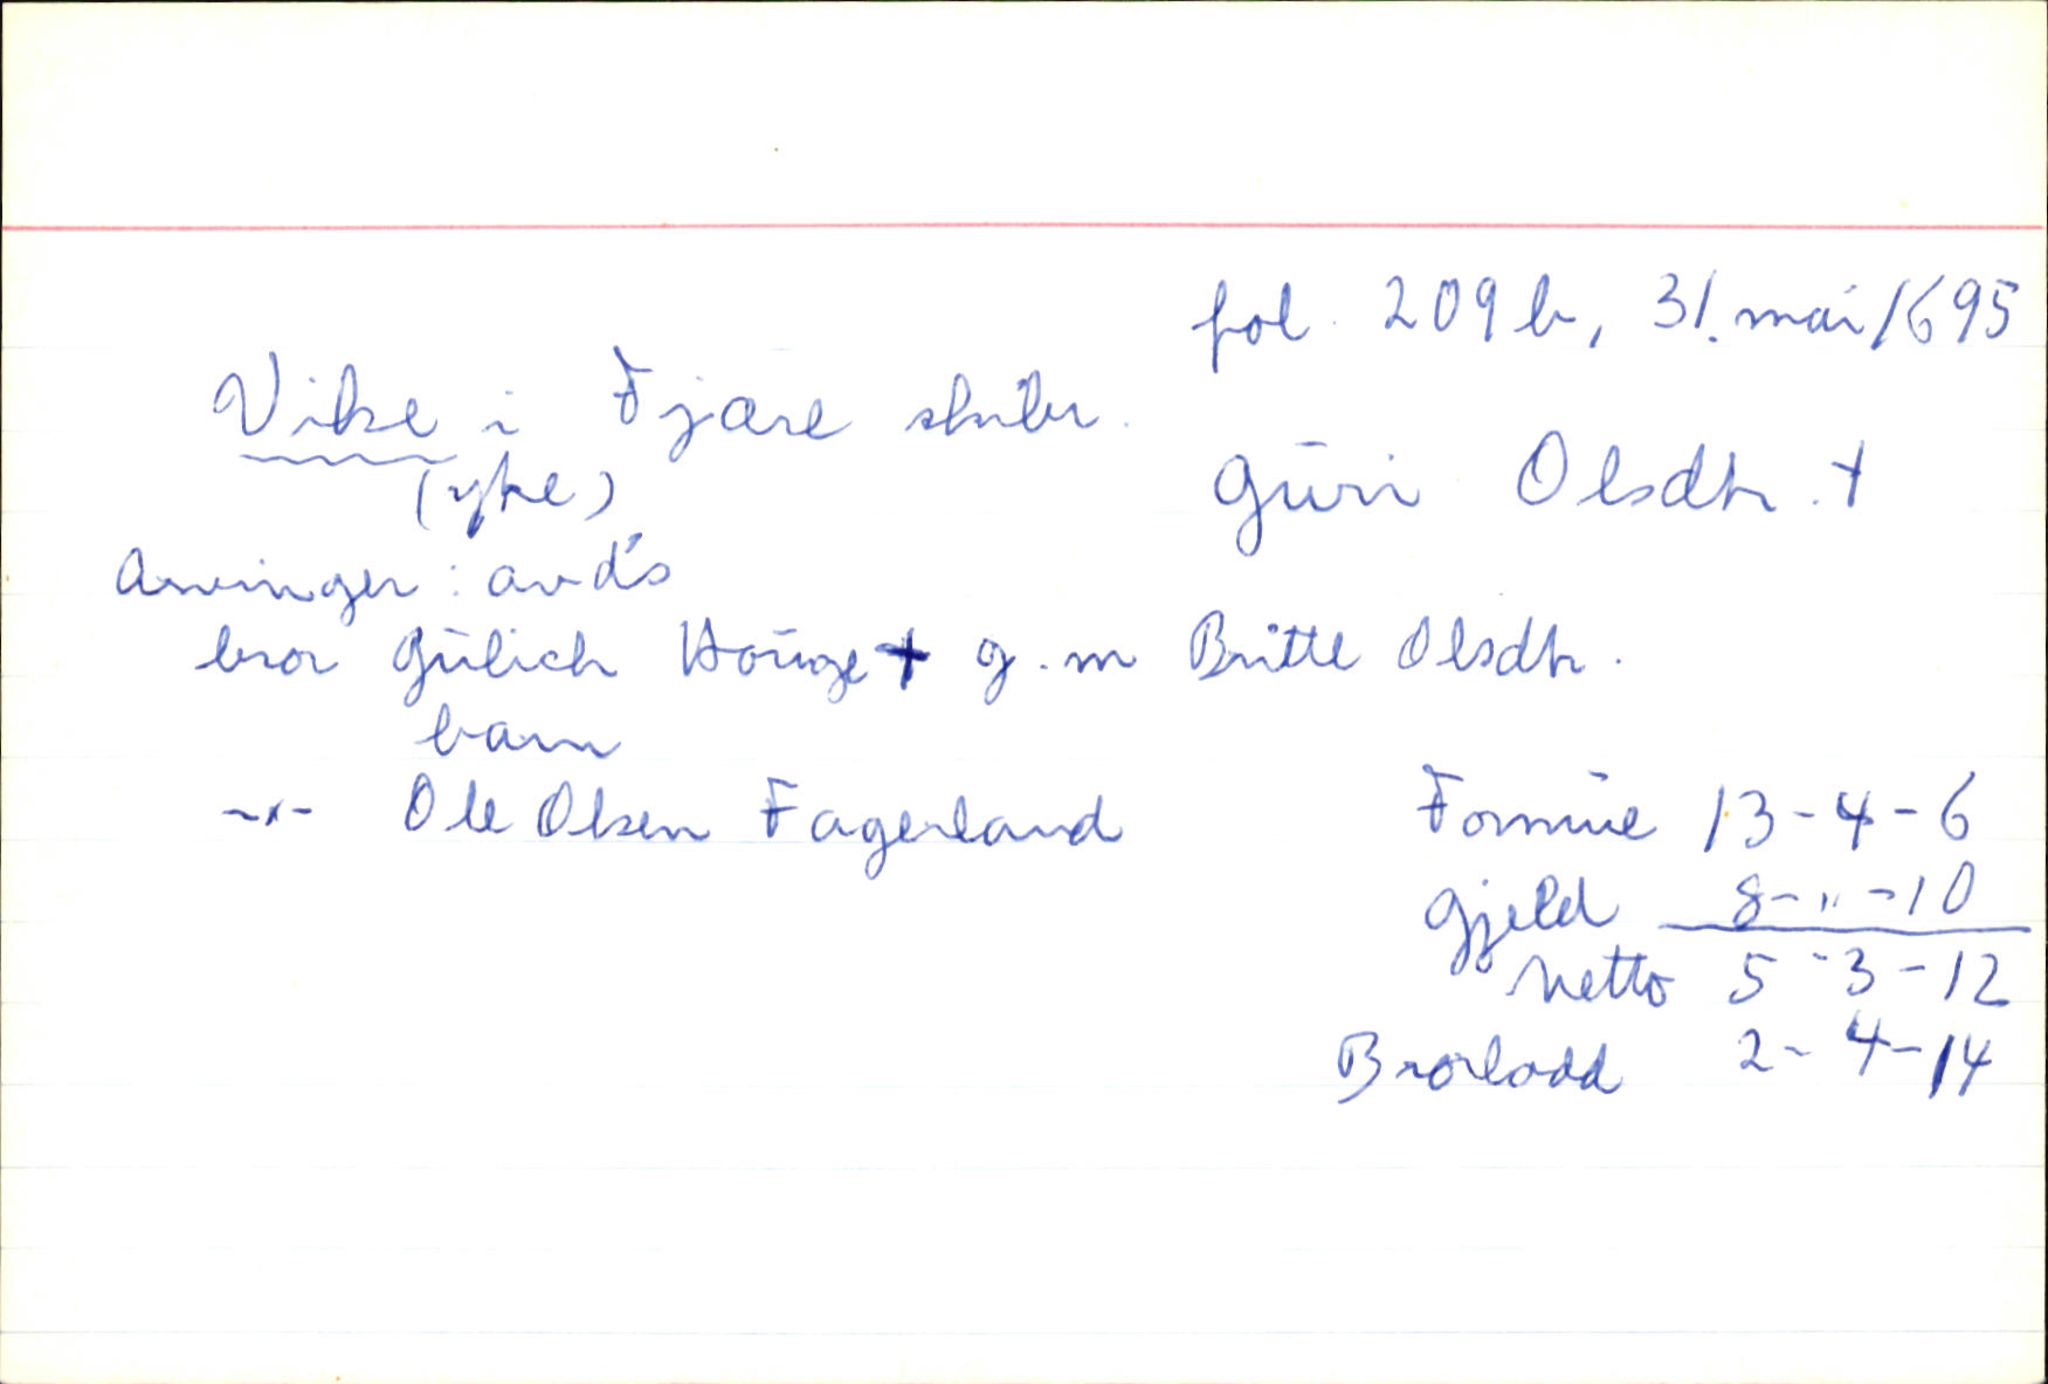 fol. 209b, 31. mai 1695
Vike i Fjære skibr.
(yke)
Guri Olsdtr. +
Arvinger: avd's
bror Gulich Houge + g.m Britte Olsdtr.
barn
-"- Ole Olsen Fagerland
Formue 13-4-6
Gjeld 8-"-10
Netto 5-3-12
Brorlodd 2-4-14